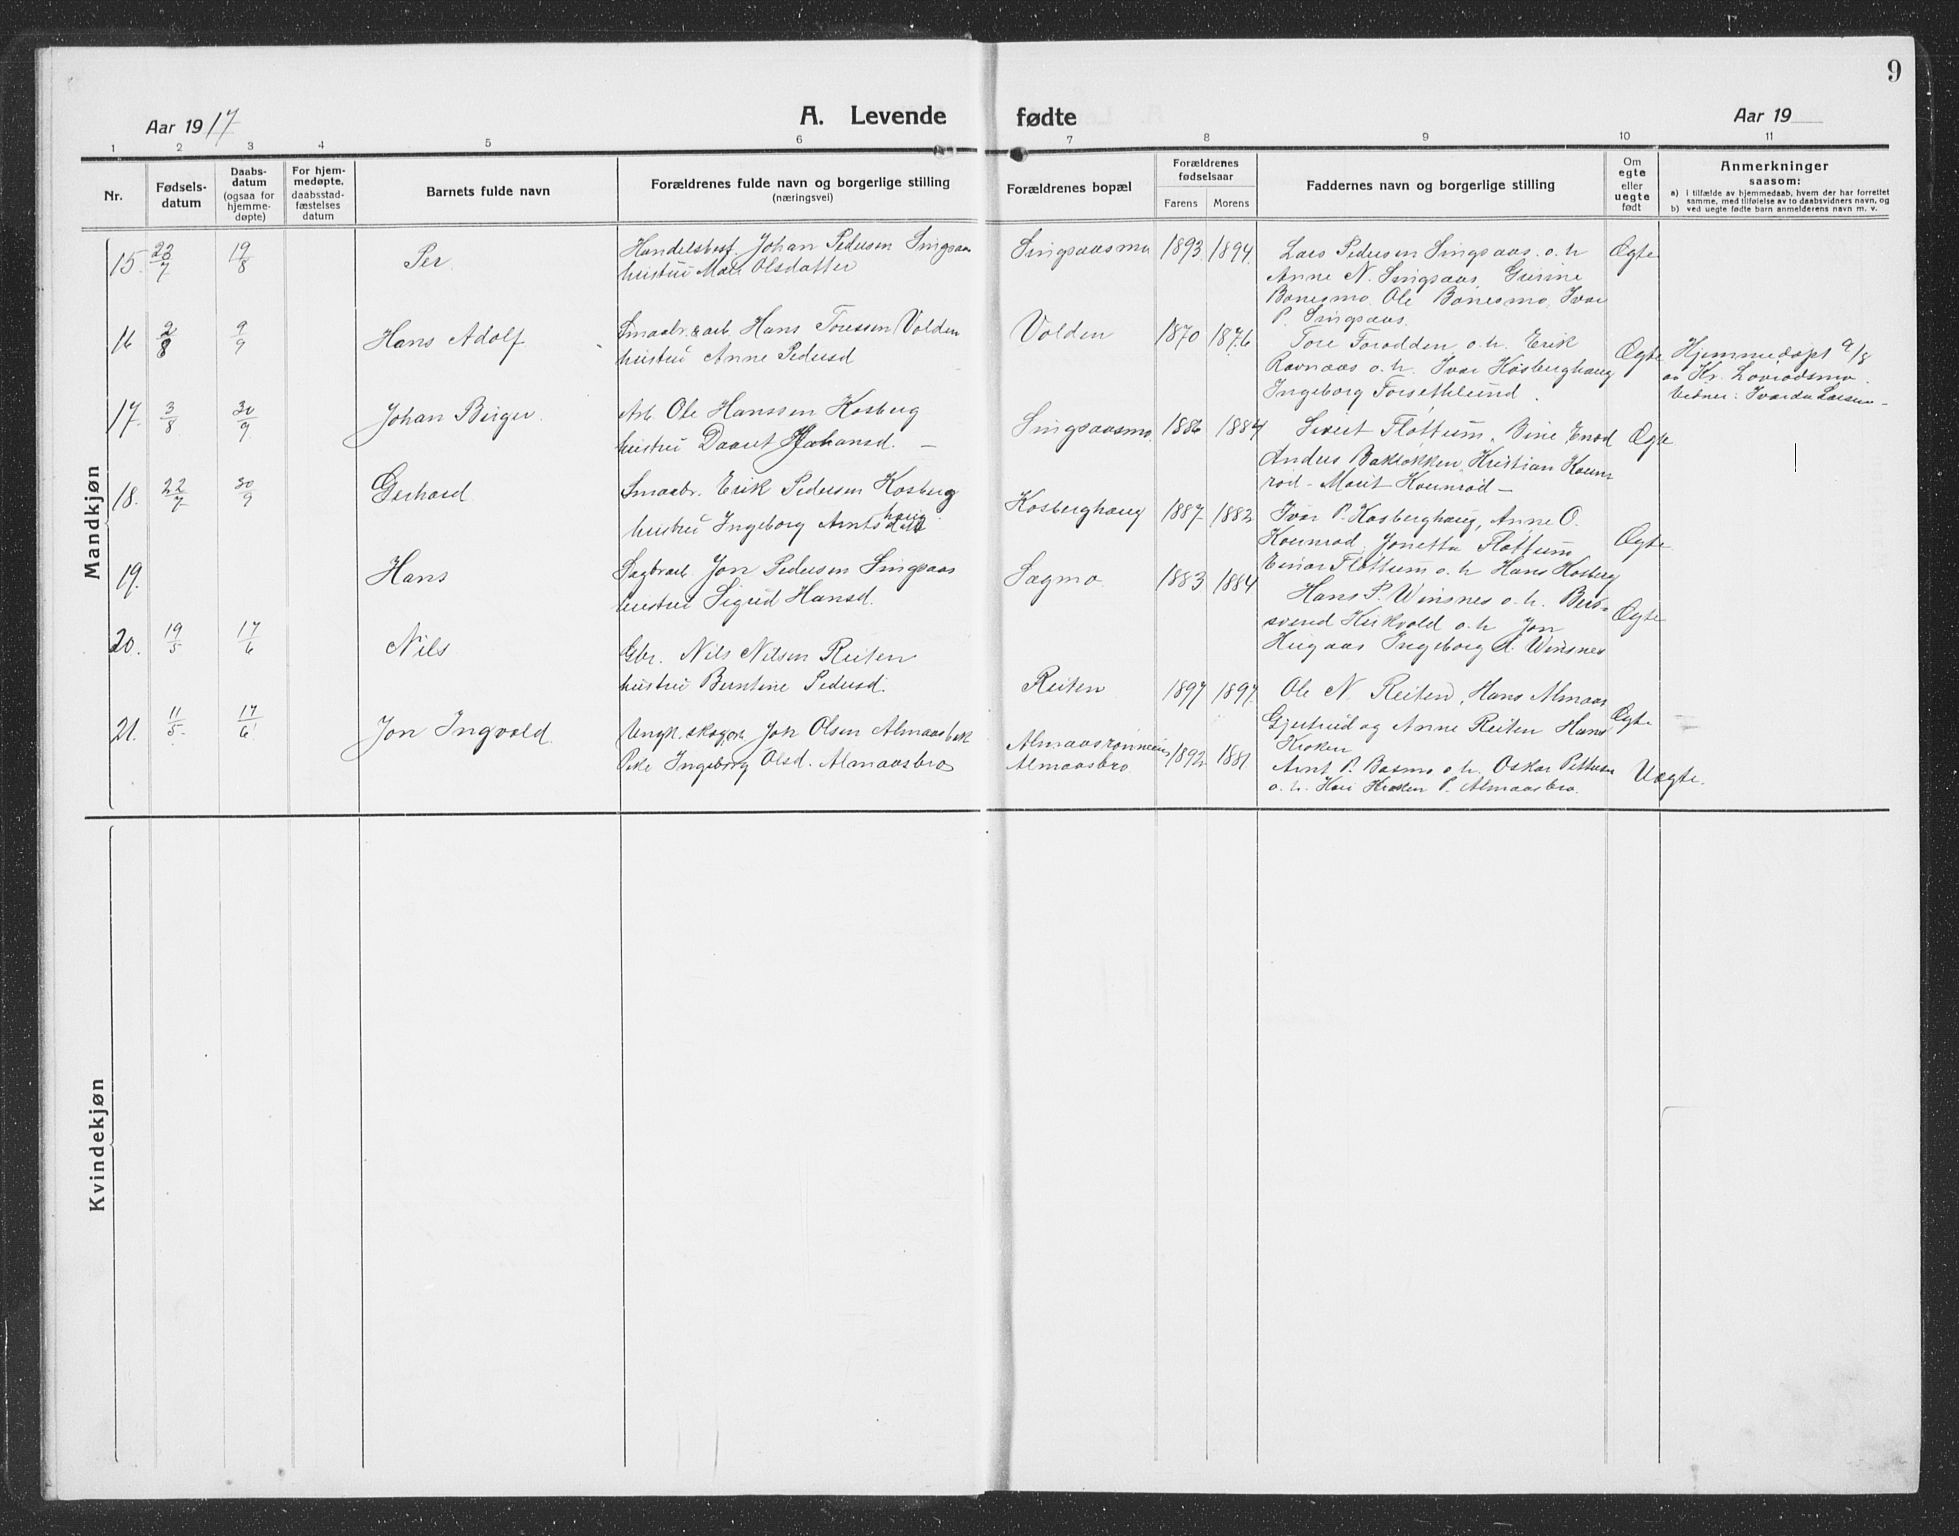 9
Aar 1917 A. Levende fødte Aar 19
1 2 3 4 5 6 7 8 9 10 11
Nr.
Fødsels-
datum
Daabs-
datum
(ogsaa for
hjemme-
døpte)
For hjem-
medøpte,
daabsstad-
fæstelses
datum
Barnets fulde navn
Forældrenes fulde navn og borgerlige stilling
(næringsvei)
Forældrenes bopæl
Forældrenes
fødselsaar
Farens Morens
Faddernes navn og borgerlige stilling
Om
egte
eller
uegte
født
Anmerkninger
saasom:
a) I tilfælde av hjemmedaab, hvem der har forrettet
samme, med tilføielse av to daabsvidners navn, og
b) ved uegte fødte barn anmelderens navn m. v.
Mandkjøn
15. 23/7 19/8 Per.
Handelsbest. Johan Pedersen Singsaas
hustru Mali Olsdatter
Singsaasmo 1893 1894
Lars Pedersen Singsaas o. h
Anne N. Singsaas, Gurine
Bonesmo, Ole Bonesmo, Ivar
P. Singsaas.
Ægte
16 2/8 9/9 Hans Adolf
Smaabr. & arb. Hans Toressen Volden
hustru Anne Pedersd
Volden 1870 1876
Tore Forodden o. h. Erik
Ravnaas o. h. Ivar Kosberghaug
Ingeborg Forsethlund.
Ægte
Hjemmedøpt 9/8
av Kr.
vidner:
17. 3/8 30/9 Johan Birger.
Arb. Ole Hanssen Kosberg
hustru Daaret Johansd. —
Singsaasmo 1886 1884
Sivert Fløttum, Enod
Anders Bakløkken, Kristian
rod - Marit —
Ægte
18. 22/7 30/9 Gerhard
Smaabr. Erik Pedersen Kosberg
haug.
hustru Ingeborg Arntsdatt
Kosberghaug 1887 1882
Ivar P. Kosberghaug, Anne O.
Jonetta Fløttum
Einar Fløttum o. h Hans Kosberg
Ægte
19. Hans
Sagbrarb. Jon Pedersen Singsaas
hustru Sigrid Hansd.
Sagmo. 1883 1884
Hans P. Winsnes o. h. Ber-
svend Kirkvold o. h Jon
Ingeborg A. Winsnes
Ægte
20. 19/5 17/6 Nils
Gbr. Nils Nilsen Reiten
hustru Berntine Pedersd.
Reiten 1897 1897
Ole N. Reiten, Hans Almaas
Gjertrud og Anne Reiten Hans
Kroken
Ægte
21. 11/5 17/6 Jon Ingvald.
Ungk. skogarb. Jon Olsen Almaasbak
Pike Ingeborg Olsd. Almaasbro
Almaasrønningen
Almaasbro 1892 1881
Arnt P. Basmo o. h. Oskar Pettersen
o. h. Kari Kroken P. Almaasbro.
Uægte.
Kvindekjøn